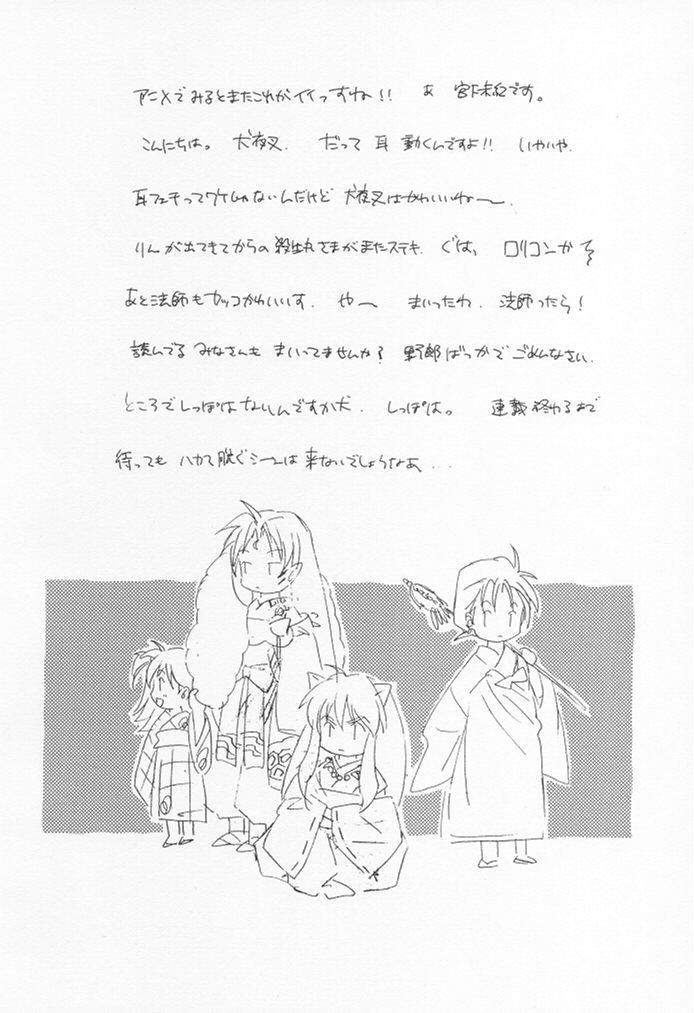 アニメでみるとまたこれがイイっすね!! あ 宮下未紀です。
こんにちは。 犬夜叉. だって 耳 動くんですよ!! いやいや.
耳フェチってワケじゃないんだけど 犬夜叉はかわいいねー.
りんが出てきてからの殺生丸さまがまたステキ. ぐは, ロリコンか
あと法師もカッコかわいいす. やー まいったわ. 法師ったら!
読んでる みなさんも まいってませんか? 野郎ばっかでごめんなさい.
ところでしっぽはないんですか犬. しっぽは。 連載終わるまで
待っても ハカマ脱ぐシーンは来ないでしょうなあ...